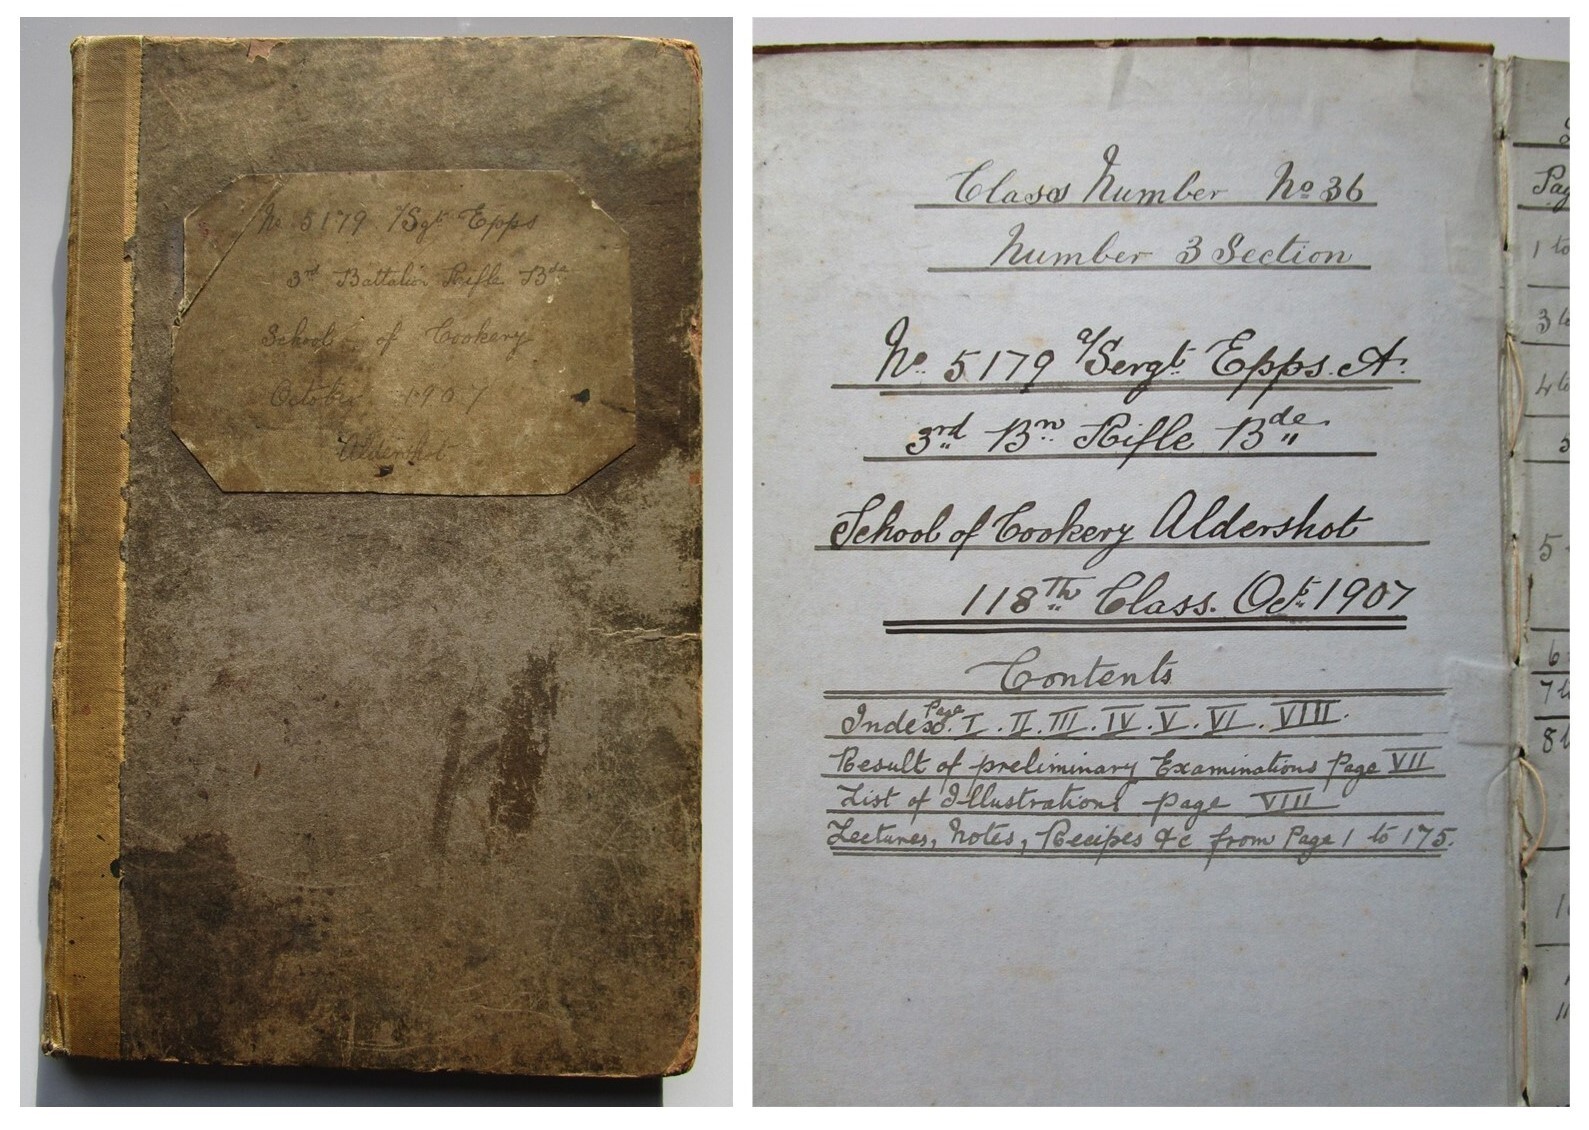 No 5179 a/Sgt Epps
3rd Battalion Rifle Bde
School of Cookery
October 1907
Aldershot
Class Number No 36
Number 3 Section
No. 5179 a/Sergt. Epps. A.
3rd Bn Rifle Bde
School of Cookery Aldershot
118th Class. Oct. 1907
Contents
Index. Page I. II. III. IV. V. VI. VIII.
Result of preliminary Examinations Page VII
List of Illustrations page VIII
Lectures, Notes, Recipes &c from Page 1 to 175.
Pag
1 to
3 to
4 to
5
5
6
7 t
8 t